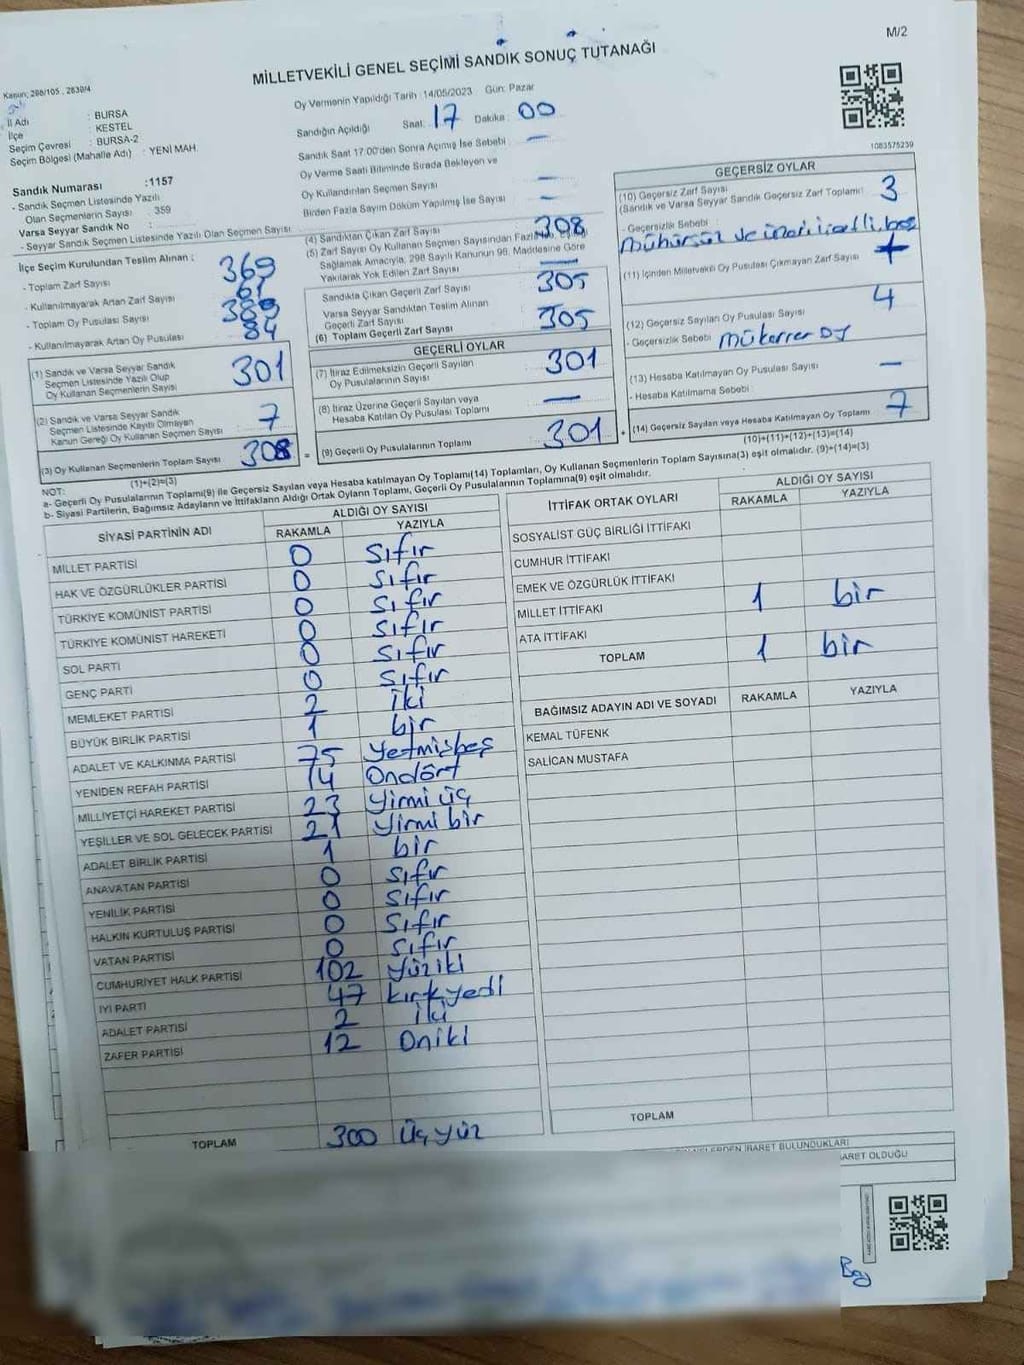 M/2
MİLLETVEKİLİ GENEL SEÇİMİ SANDIK SONUÇ TUTANAĞI
Kanun: 298/105 , 2839/4
Oy Vermenin Yapıldığı Tarih : 14/05/2023 Gün: Pazar
İl Adı : BURSA
İlçe : KESTEL
Seçim Çevresi : BURSA-2
Seçim Bölgesi (Mahalle Adı) : YENİ MAH.
Sandığın Açıldığı Saat: 17 Dakika: 00
Sandık Saat 17.00'den Sonra Açılmış İse Sebebi : —
Oy Verme Saati Bitiminde Sırada Bekleyen ve
Oy Kullandırılan Seçmen Sayısı —
Birden Fazla Sayım Döküm Yapılmış İse Sayısı —
Sandık Numarası : 1157
- Sandık Seçmen Listesinde Yazılı
Olan Seçmenlerin Sayısı : 359
Varsa Seyyar Sandık No :
- Seyyar Sandık Seçmen Listesinde Yazılı Olan Seçmen Sayısı
İlçe Seçim Kurulundan Teslim Alınan :
- Toplam Zarf Sayısı 369
- Kullanılmayarak Artan Zarf Sayısı 61
- Toplam Oy Pusulası Sayısı
- Kullanılmayarak Artan Oy Pusulası 84
(1) Sandık ve Varsa Seyyar Sandık
Seçmen Listesinde Yazılı Olup
Oy Kullanan Seçmenlerin Sayısı 301
(2) Sandık ve Varsa Seyyar Sandık
Seçmen Listesinde Kayıtlı Olmayan
Kanun Gereği Oy Kullanan Seçmen Sayısı 7
(3) Oy Kullanan Seçmenlerin Toplam Sayısı 308
(1)+(2)=(3)
(4) Sandıktan Çıkan Zarf Sayısı 308
(5) Zarf Sayısı Oy Kullanan Seçmen Sayısından Fazla
Sağlamak Amacıyla, 298 Sayılı Kanunun 98. Maddesine Göre
Yakılarak Yok Edilen Zarf Sayısı —
Sandıkta Çıkan Geçerli Zarf Sayısı 305
Varsa Seyyar Sandıktan Teslim Alınan
Geçerli Zarf Sayısı
(6) Toplam Geçerli Zarf Sayısı 305
GEÇERLİ OYLAR
(7) İtiraz Edilmeksizin Geçerli Sayılan
Oy Pusulalarının Sayısı 301
(8) İtiraz Üzerine Geçerli Sayılan veya
Hesaba Katılan Oy Pusulası Toplamı —
= (9) Geçerli Oy Pusulalarının Toplamı 301 +
1083575239
GEÇERSİZ OYLAR
(10) Geçersiz Zarf Sayısı
(Sandık ve Varsa Seyyar Sandık Geçersiz Zarf Toplamı) 3
- Geçersizlik Sebebi :
mühürsüz ve
(11) İçinden Milletvekili Oy Pusulası Çıkmayan Zarf Sayısı
(12) Geçersiz Sayılan Oy Pusulası Sayısı 4
- Geçersizlik Sebebi mükerrer oy
(13) Hesaba Katılmayan Oy Pusulası Sayısı —
- Hesaba Katılmama Sebebi :
(14) Geçersiz Sayılan veya Hesaba Katılmayan Oy Toplamı 7
(10)+(11)+(12)+(13)=(14)
NOT:
a- Geçerli Oy Pusulalarının Toplamı(9) ile Geçersiz Sayılan veya Hesaba katılmayan Oy Toplamı(14) Toplamları, Oy Kullanan Seçmenlerin Toplam Sayısına(3) eşit olmalıdır. (9)+(14)=(3)
b- Siyasi Partilerin, Bağımsız Adayların ve İttifakların Aldığı Ortak Oyların Toplamı, Geçerli Oy Pusulalarının Toplamına(9) eşit olmalıdır.
SİYASİ PARTİNİN ADI ALDIĞI OY SAYISI
RAKAMLA YAZIYLA
MİLLET PARTİSİ 0 sıfır
HAK VE ÖZGÜRLÜKLER PARTİSİ 0 sıfır
TÜRKİYE KOMÜNİST PARTİSİ 0 sıfır
TÜRKİYE KOMÜNİST HAREKETİ 0 sıfır
SOL PARTİ 0 sıfır
GENÇ PARTİ 0 sıfır
MEMLEKET PARTİSİ 2 iki
BÜYÜK BİRLİK PARTİSİ 1 bir
ADALET VE KALKINMA PARTİSİ 75 Yetmişbeş
YENİDEN REFAH PARTİSİ 14 Ondört
MİLLİYETÇİ HAREKET PARTİSİ 23 Yirmi üç
YEŞİLLER VE SOL GELECEK PARTİSİ 21 Yirmi bir
ADALET BİRLİK PARTİSİ 1 bir
ANAVATAN PARTİSİ 0 sıfır
YENİLİK PARTİSİ 0 sıfır
HALKIN KURTULUŞ PARTİSİ 0 sıfır
VATAN PARTİSİ 0 sıfır
CUMHURİYET HALK PARTİSİ 102 Yüziki
İYİ PARTİ 47 kırkyedi
ADALET PARTİSİ 2 iki
ZAFER PARTİSİ 12 Oniki
TOPLAM 300 Üçyüz
İTTİFAK ORTAK OYLARI ALDIĞI OY SAYISI
RAKAMLA YAZIYLA
SOSYALİST GÜÇ BİRLİĞİ İTTİFAKI
CUMHUR İTTİFAKI
EMEK VE ÖZGÜRLÜK İTTİFAKI
MİLLET İTTİFAKI 1 bir
ATA İTTİFAKI
TOPLAM 1 bir
BAĞIMSIZ ADAYIN ADI VE SOYADI RAKAMLA YAZIYLA
KEMAL TÜFENK
SALİCAN MUSTAFA
TOPLAM
İBARET BULUNDUKLARI
OLDUĞU